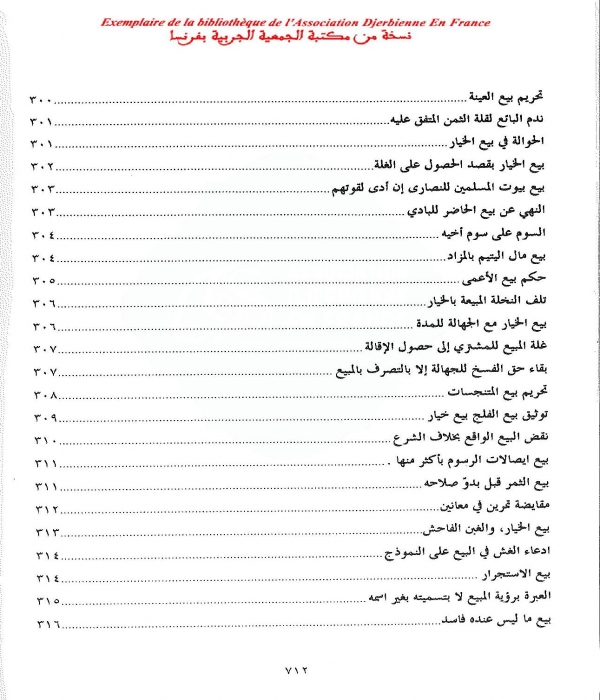 Exemplaire de la bibliothèque de l'Association Djerbienne En France
نسخة من مكتبة الجمعية الجربية بفرنسا
تحريم بيع العينة ٣٠٠
ندم البائع لقلة الثمن المتفق عليه ٣٠١
الحوالة في بيع الخيار ٣٠١
بيع الخيار بقصد الحصول على الغلة ٣٠٢
بيع بيوت المسلمين للنصارى إن أدى لقوتهم ٣٠٣
النهي عن بيع الحاضر للبادي ٣٠٣
السوم على سوم أخيه ٣٠٤
بيع مال اليتيم بالمزاد ٣٠٤
حكم بيع الأعمى ٣٠٥
تلف النخلة المبيعة بالخيار ٣٠٦
بيع الخيار مع الجهالة للمدة ٣٠٦
غلة المبيع للمشتري إلى حصول الإقالة ٣٠٧
بقاء حق الفسخ للجهالة إلا بالتصرف بالمبيع ٣٠٧
تحريم بيع المتنجسات ٣٠٨
توثيق بيع الفلج بيع خيار ٣٠٩
نقض البيع الواقع بخلاف الشرع ٣١٠
بيع ايصالات الرسوم بأكثر منها . ٣١١
بيع الثمر قبل بدوّ صلاحه ٣١١
مقايضة تمرين في معانين ٣١٢
بيع الخيار، والغبن الفاحش ٣١٣
ادعاء الغش في البيع على النموذج ٣١٤
بيع الاستجرار ٣١٤
العبرة برؤية المبيع لا بتسميته بغير اسمه ٣١٥
بيع ما ليس عنده فاسد ٣١٦
٧١٢